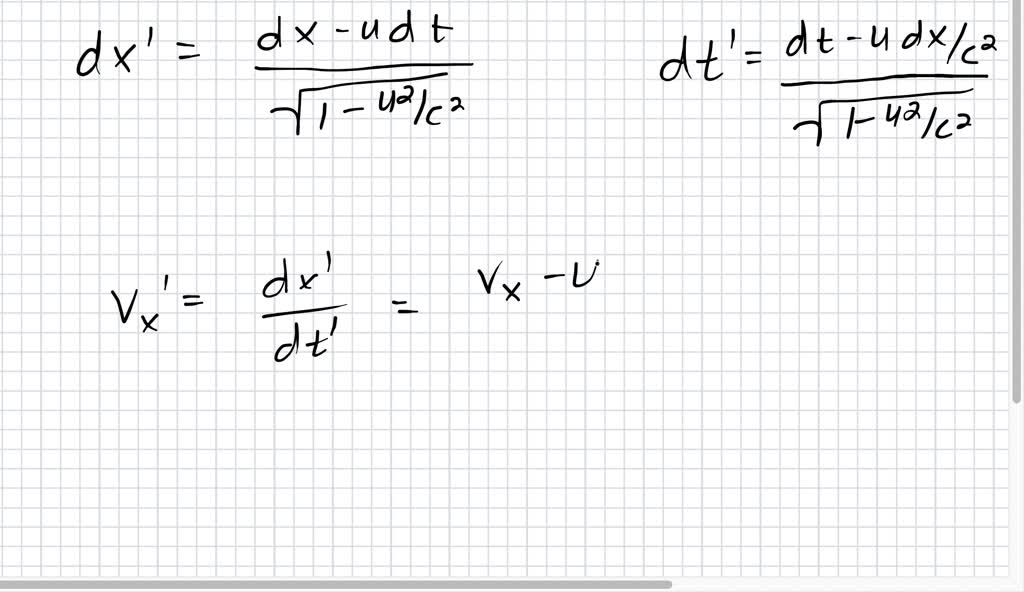 dx' = (dx - udt) / √(1 - u²/c²)    dt' = (dt - udx/c²) / √(1 - u²/c²)
Vx' = dx' / dt' = Vx - u